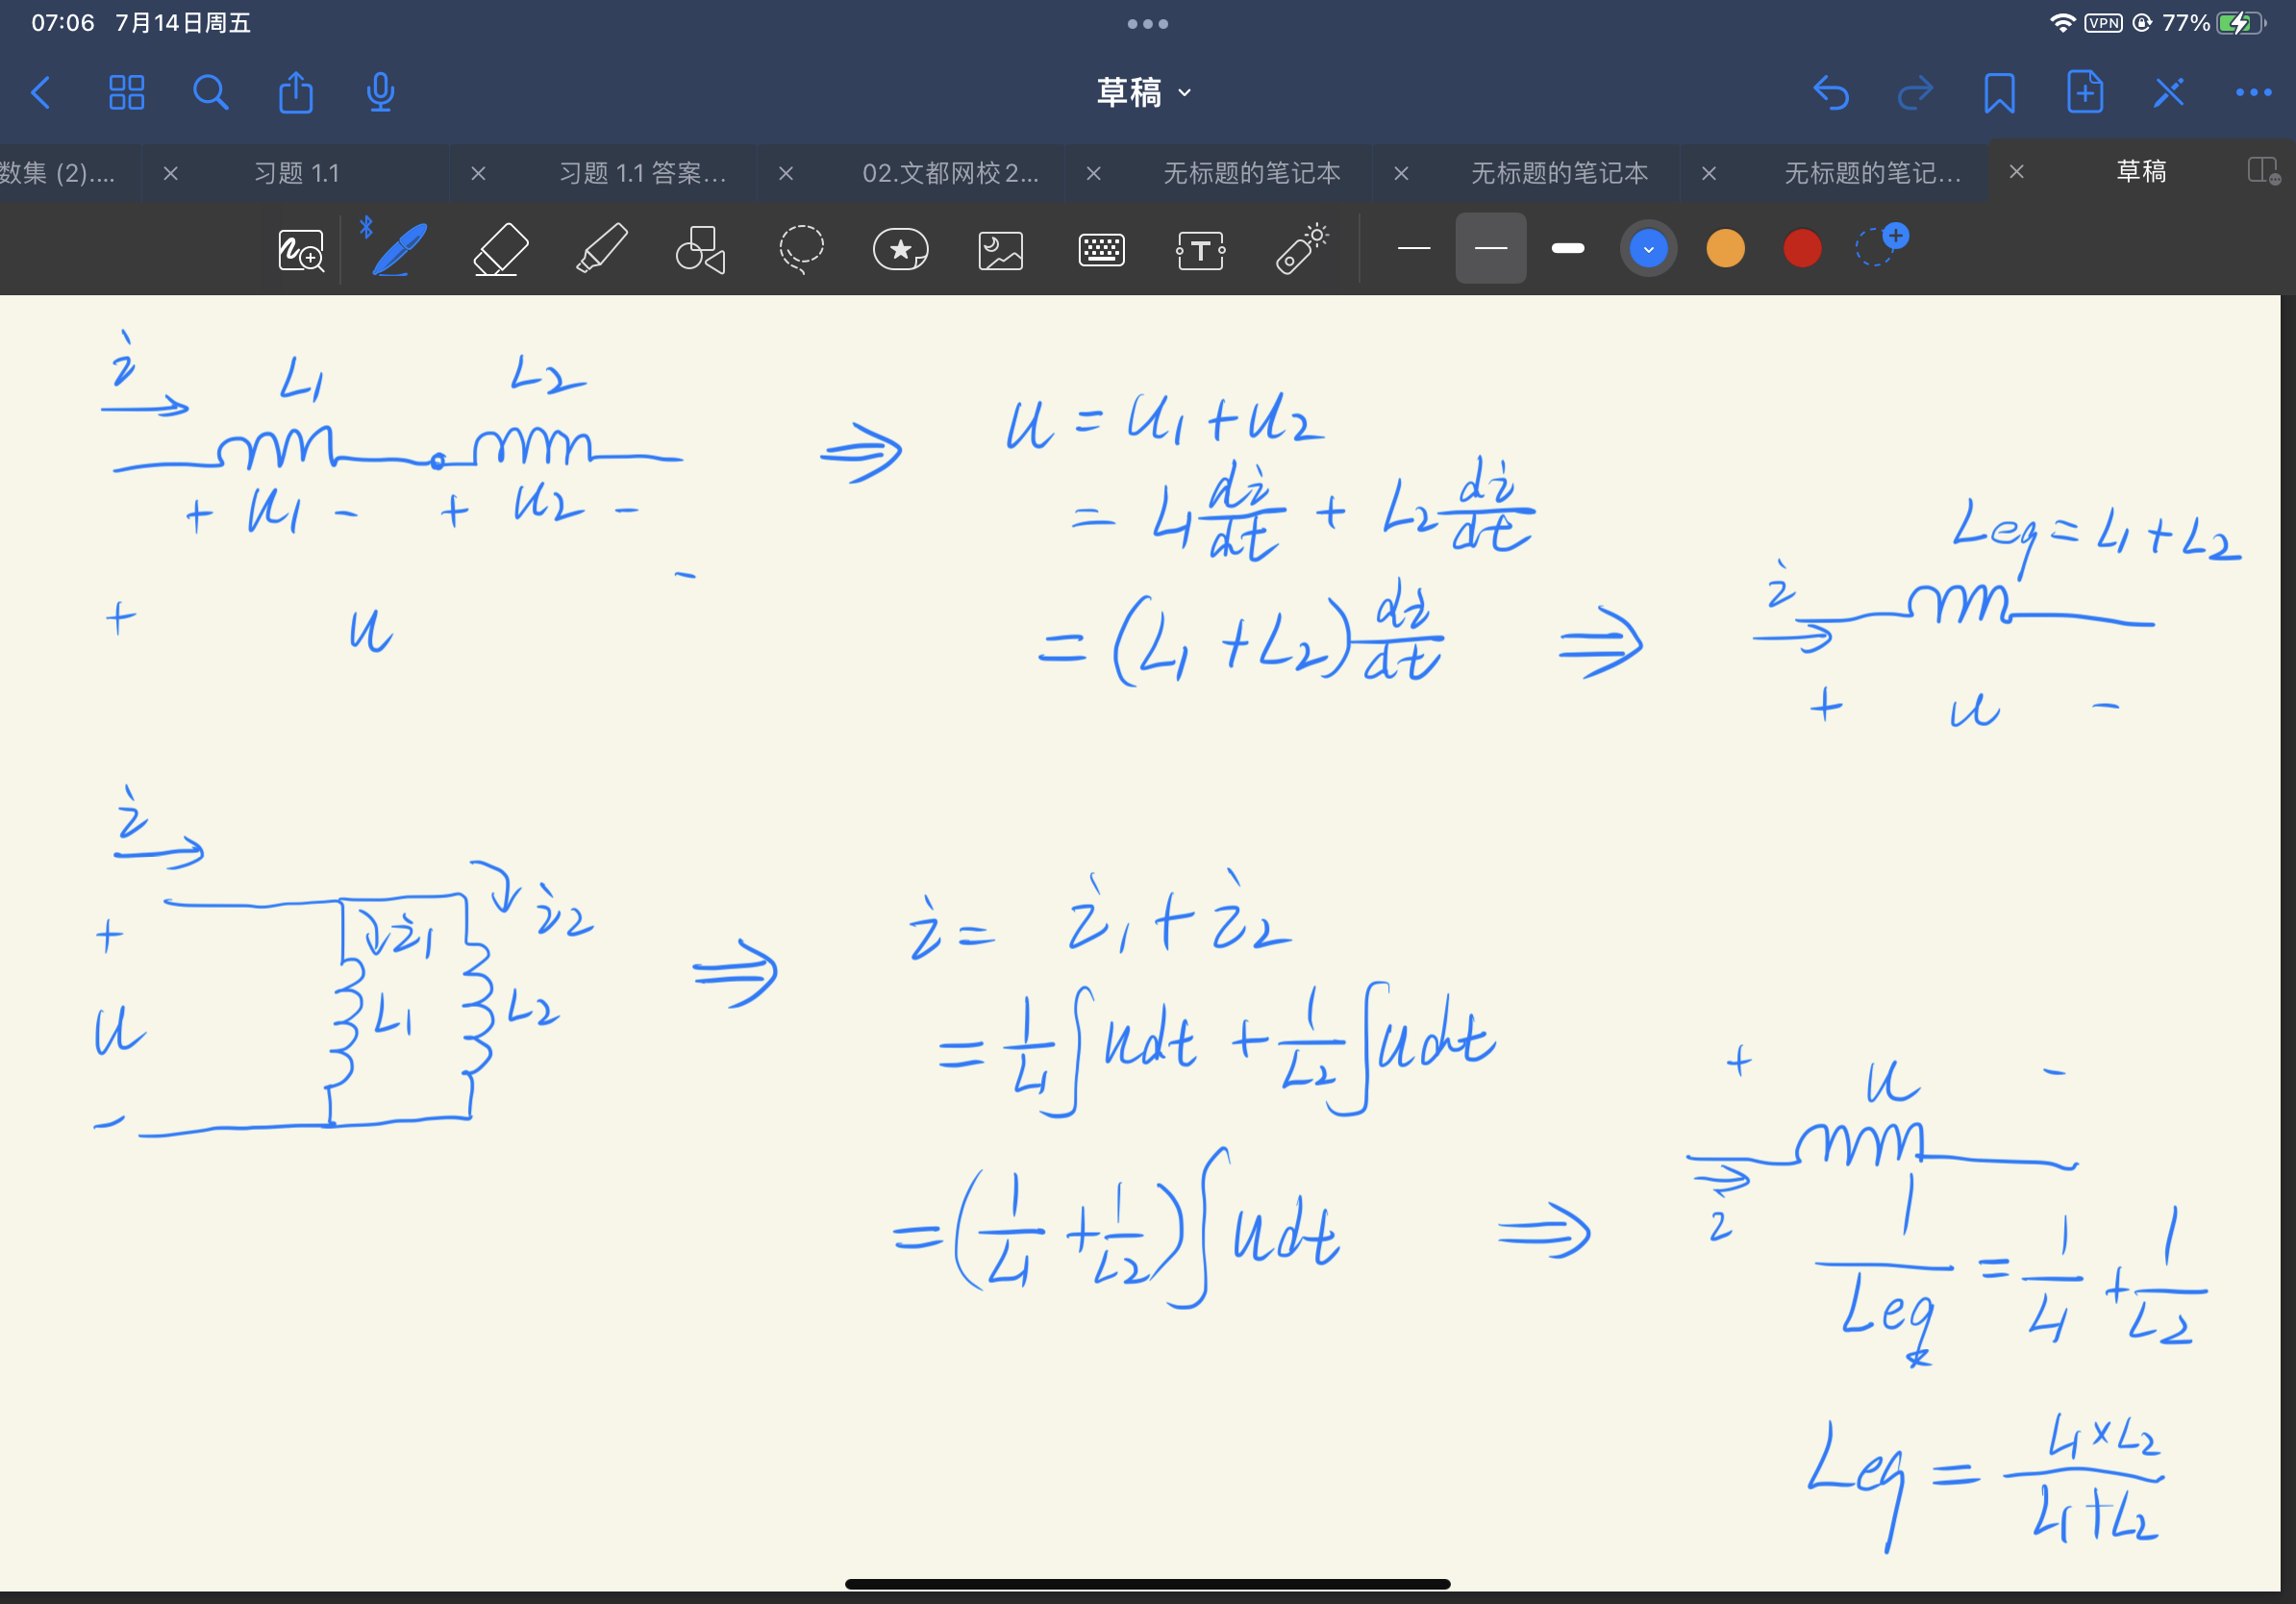 07:06 7月14日周五
VPN 77%
草稿
数集 (2)....
习题 1.1
习题 1.1 答案...
02.文都网校 2...
无标题的笔记本
无标题的笔记本
无标题的笔记...
草稿
T
i
L₁ L₂
+ u₁ - + u₂ -
+ u -
⇒
u = u₁ + u₂
= L₁ di/dt + L₂ di/dt
= (L₁ + L₂) di/dt
⇒
Leq = L₁ + L₂
i
+ u -
i
+
u
-
i₁ i₂
L₁ L₂
⇒
i = i₁ + i₂
= 1/L₁ ∫udt + 1/L₂ ∫udt
= (1/L₁ + 1/L₂) ∫udt
⇒
+ u -
i
1/Leq = 1/L₁ + 1/L₂
Leq = L₁×L₂/L₁+L₂